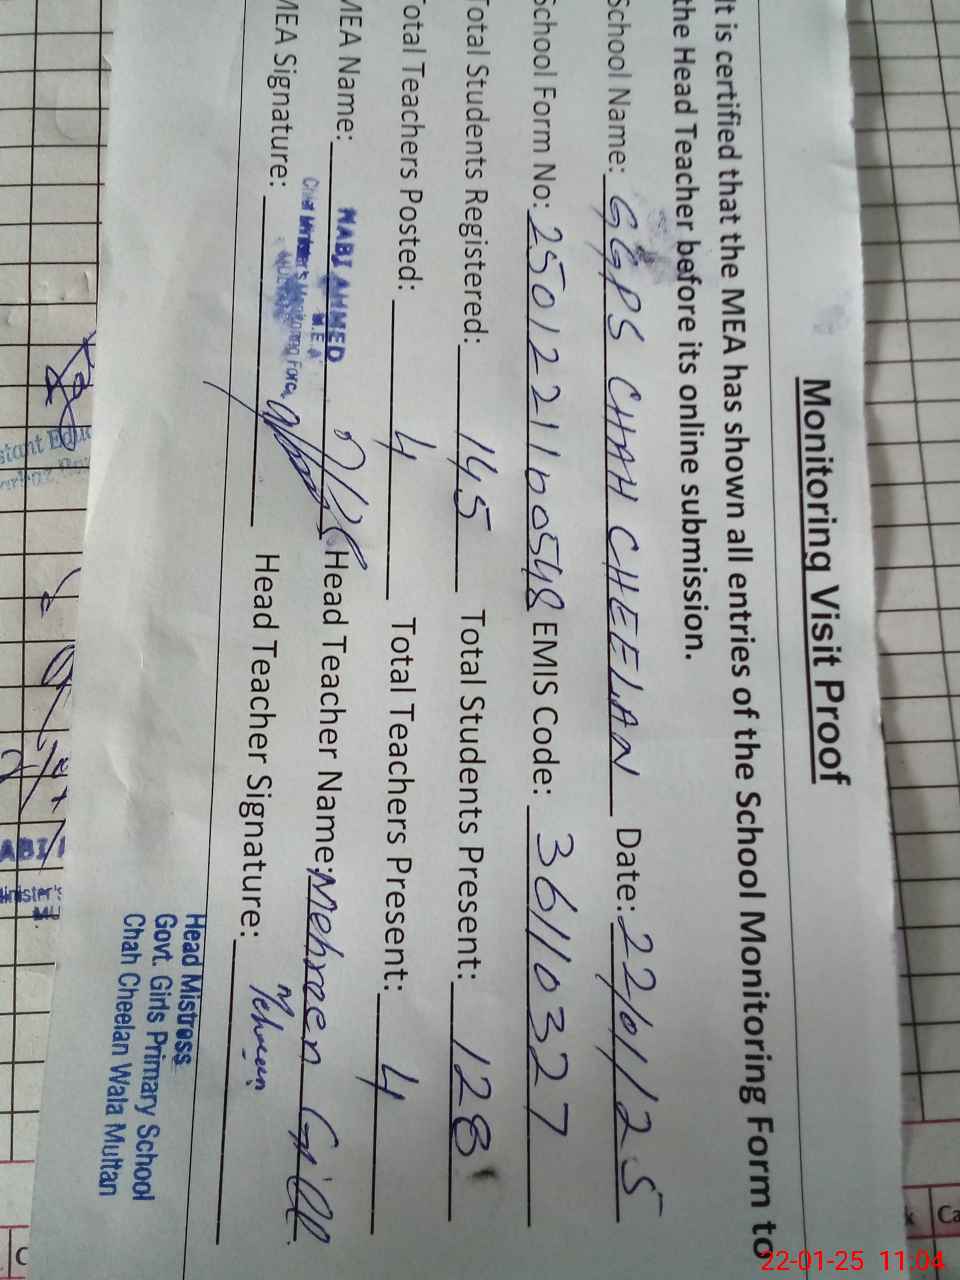 Monitoring Visit Proof
It is certified that the MEA has shown all entries of the School Monitoring Form to
the Head Teacher before its online submission.
School Name: GGPS CHAH CHEELAN Date: 22/01/25
School Form No: EMIS Code: 36110327
Total Students Registered: 145 Total Students Present: 128
Total Teachers Posted: 4 Total Teachers Present: 4
MEA Name: NABI AHMED Head Teacher Name: Mehreen Gill
M.E.A
Chief Minister's Monitoring Force
MEA Signature: Head Teacher Signature: Mehreen
Head Mistress
Govt. Girls Primary School
Chah Cheelan Wala Multan
22-01-25 11:04